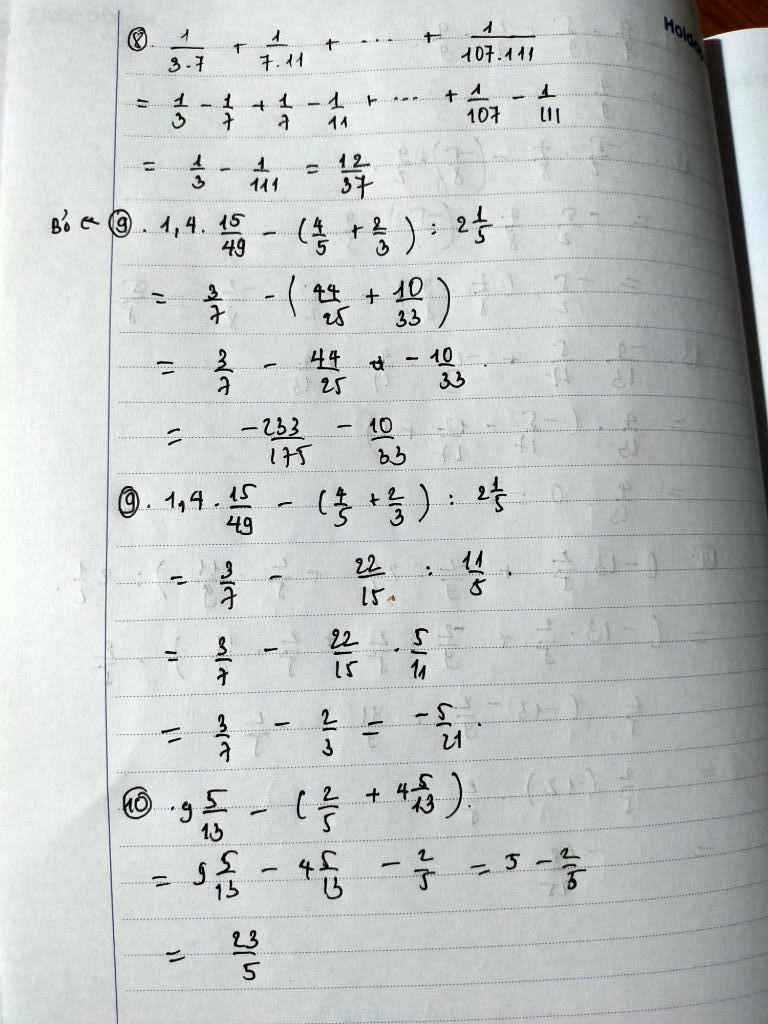 Holda
⑧ 1/(3.7) + 1/(7.11) + ... + 1/(107.111)
= 1/3 - 1/7 + 1/7 - 1/11 + ... + 1/107 - 1/111
= 1/3 - 1/111 = 12/37
Bỏ ← ⑨ . 1,4 . 15/49 - (4/5 + 2/3) : 2 1/5
= 3/7 - (44/25 + 10/33)
= 3/7 - 44/25 - 10/33
= -233/175 - 10/33
⑨ . 1,4 . 15/49 - (4/5 + 2/3) : 2 1/5
= 3/7 - 22/15 : 11/5 .
= 3/7 - 22/15 . 5/11
= 3/7 - 2/3 = -5/21 .
⑩ . 9 5/13 - (2/5 + 4 5/13) .
= 9 5/13 - 4 5/13 - 2/5 = 5 - 2/5
= 23/5